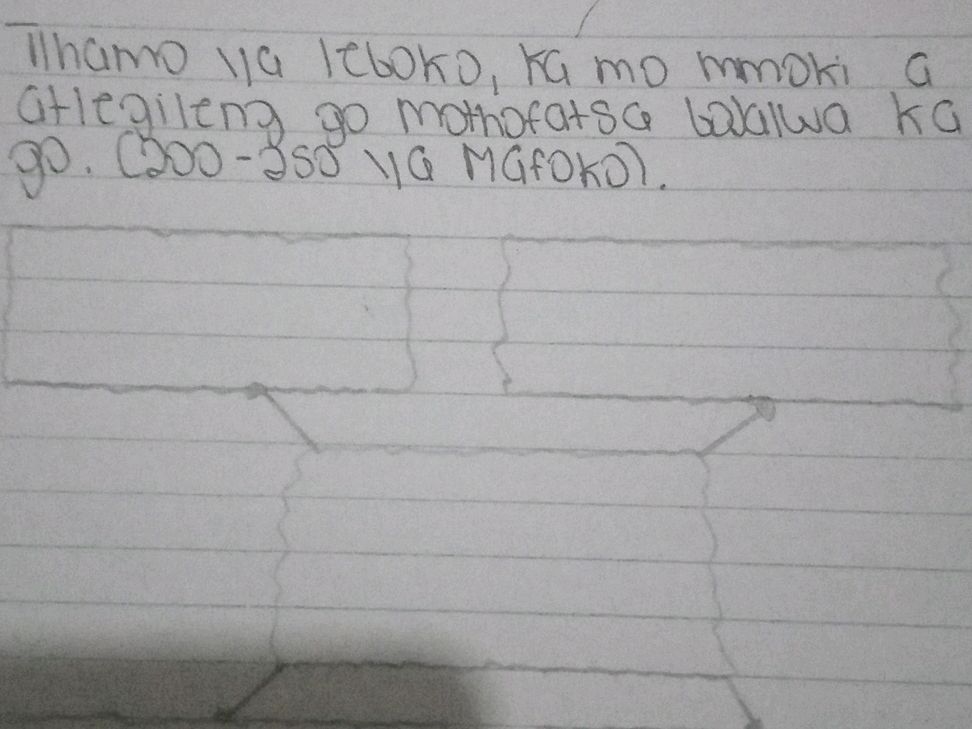 Tlhamo ya leboko, ka mo mmoki a
atlegileng go mothofatsa balalwa ka
go. (200-250 ya Mafoko).